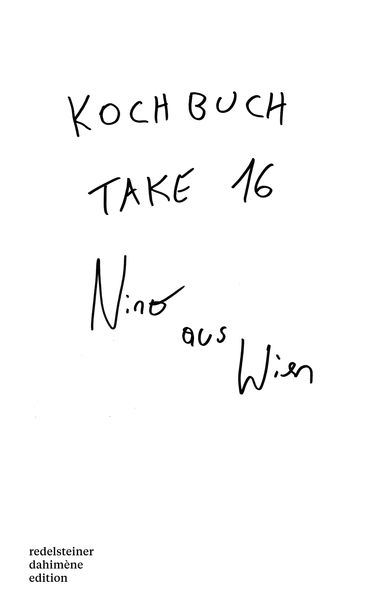 KOCHBUCH
TAKE 16
Nino
aus
Wien
redelsteiner
dahimène
edition